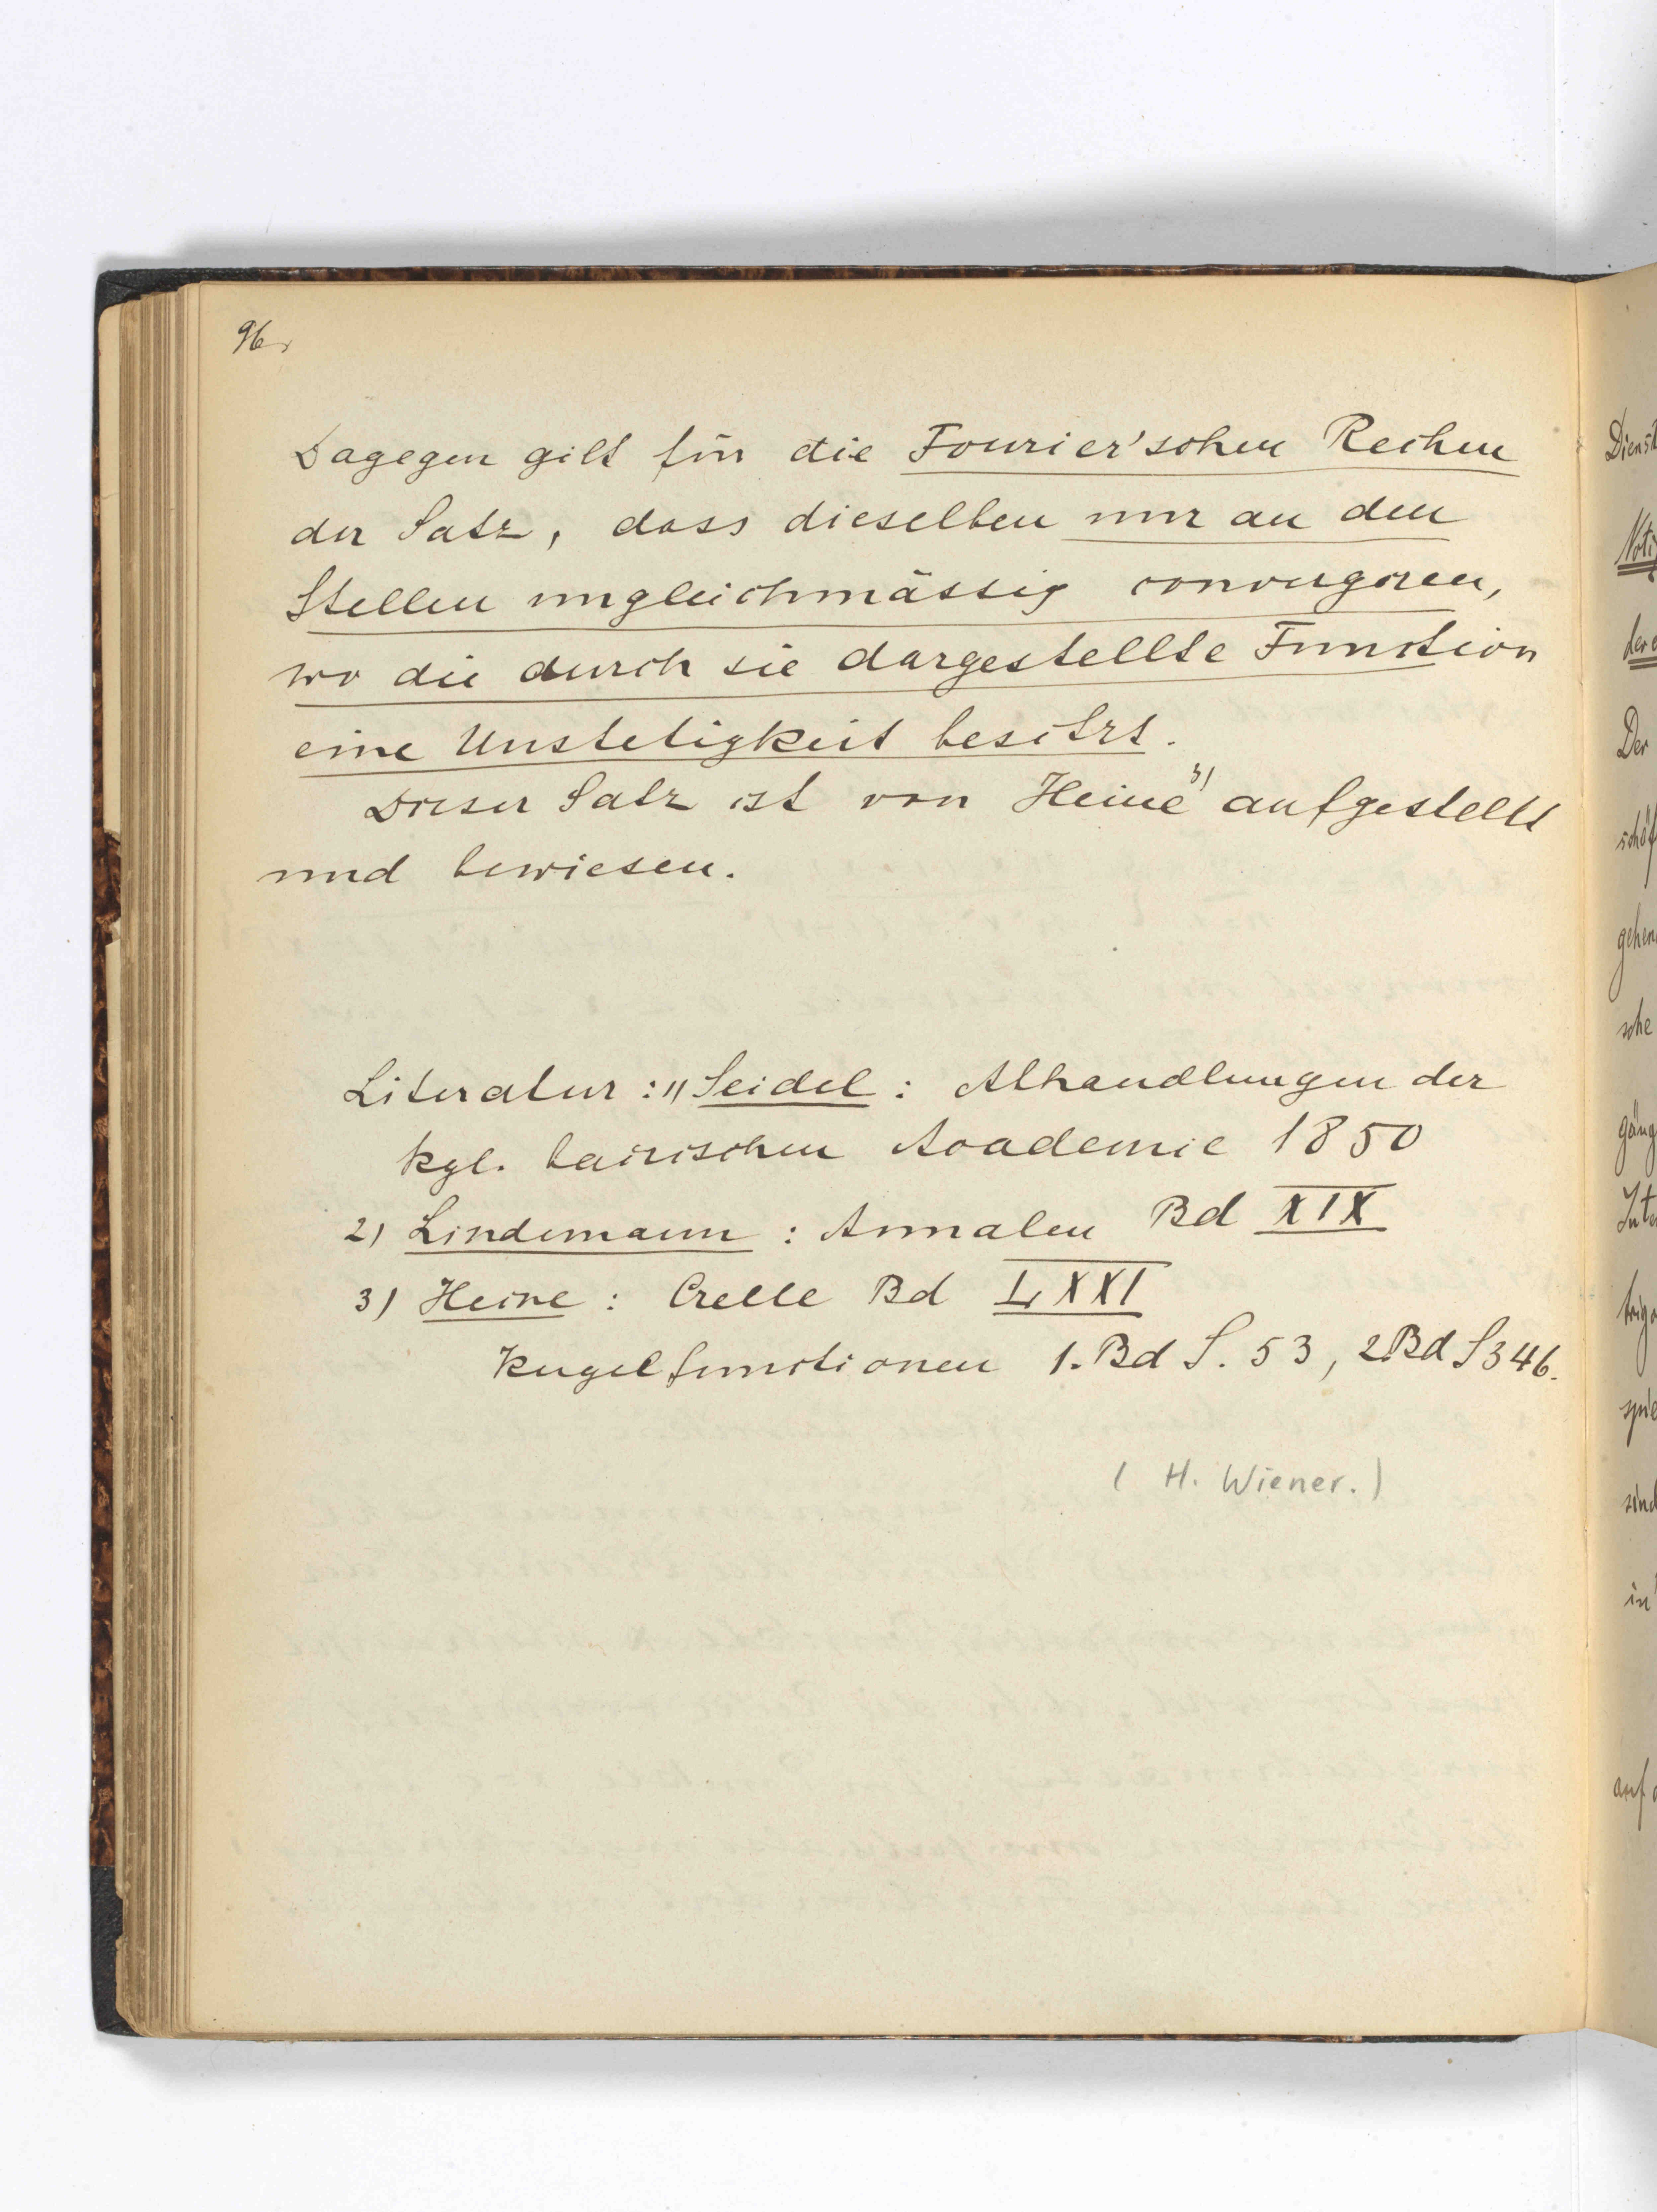 96.
Dagegen gilt für die Fourier'schen Reihen
der Satz, dass dieselben nur an den
Stellen ungleichmässig convergiren,
wo die durch sie dargestellte Function
eine Unstetigkeit besitzt.
Dieser Satz ist von Heine 3) aufgestellt
und bewiesen.
Literatur: 1) Seidel: Abhandlungen der
kgl. bairischen Academie 1850
2) Lindemann: Annalen Bd XIX
3) Heine: Crelle Bd LXXI
Kugelfunctionen 1. Bd S. 53, 2 Bd S 346.
(H. Wiener.)
Dienst
Noti
Der
gehen
sche
gäng
Inte
sind
in
auf